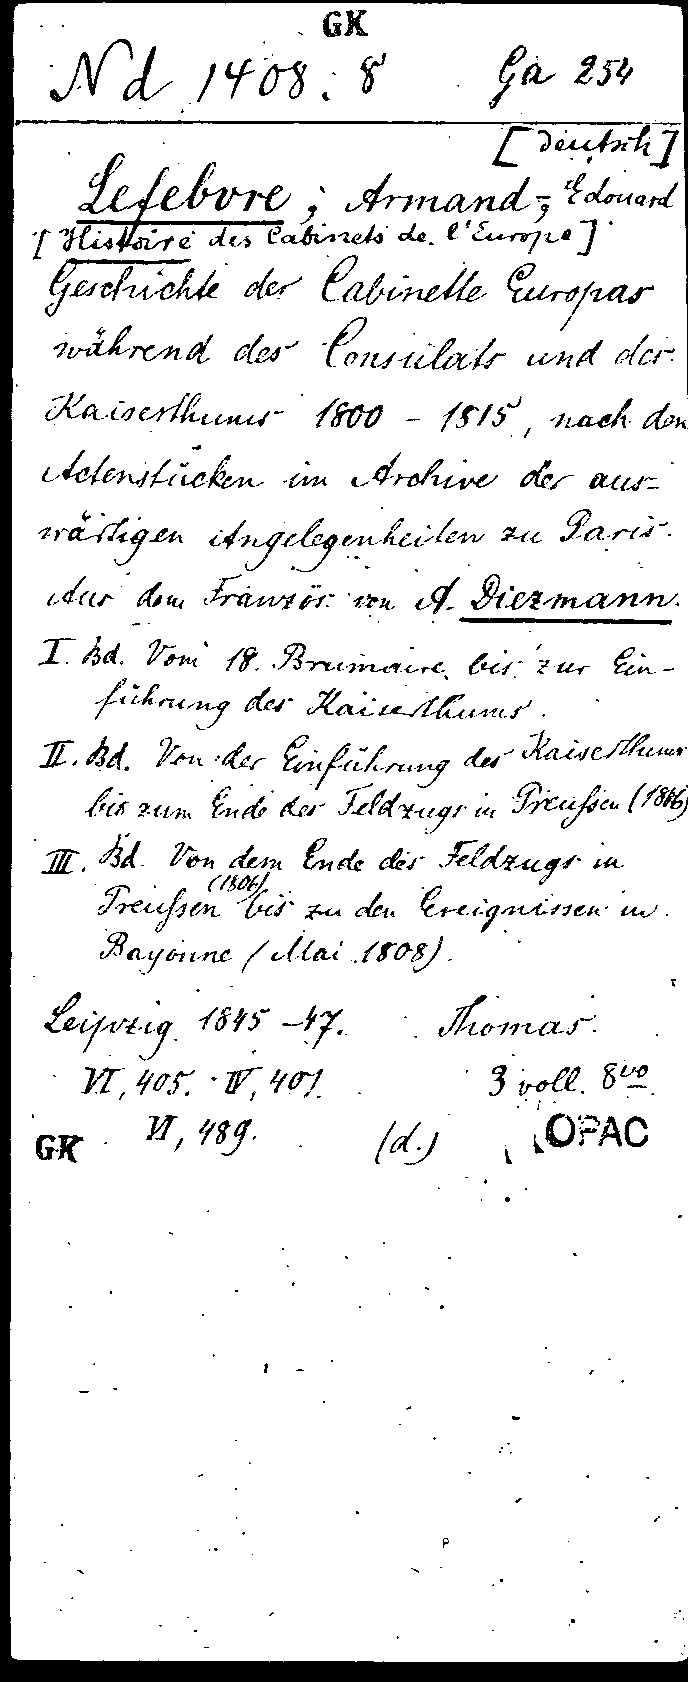 GK
Nd 1408:8 Ga 254
[Deutsch]
Lefebvre; Armand-; Edouard
[Histoire des Cabinets de l'Europe]
Geschichte der Cabinette Europas
während des Consulats und des
Kaiserthums 1800 - 1815, nach den
Actenstücken im Archive der aus-
wärtigen Angelegenheiten zu Paris.
Aus dem Französ. von A. Diezmann.
I. Bd. Vom 18. Brumaire bis zur Ein-
führung des Kaiserthums.
II. Bd. Von der Einführung des Kaiserthums
bis zum Ende des Feldzugs in Preußen (1806)
III. Bd. Von dem Ende des Feldzugs in
Preußen (1806) bis zu den Ereignissen in
Bayonne (Mai 1808).
Leipzig 1845-47. Thomas.
VI, 405. IV, 401. 3 voll. 8vo
VI, 489. (d.) OPAC
GK